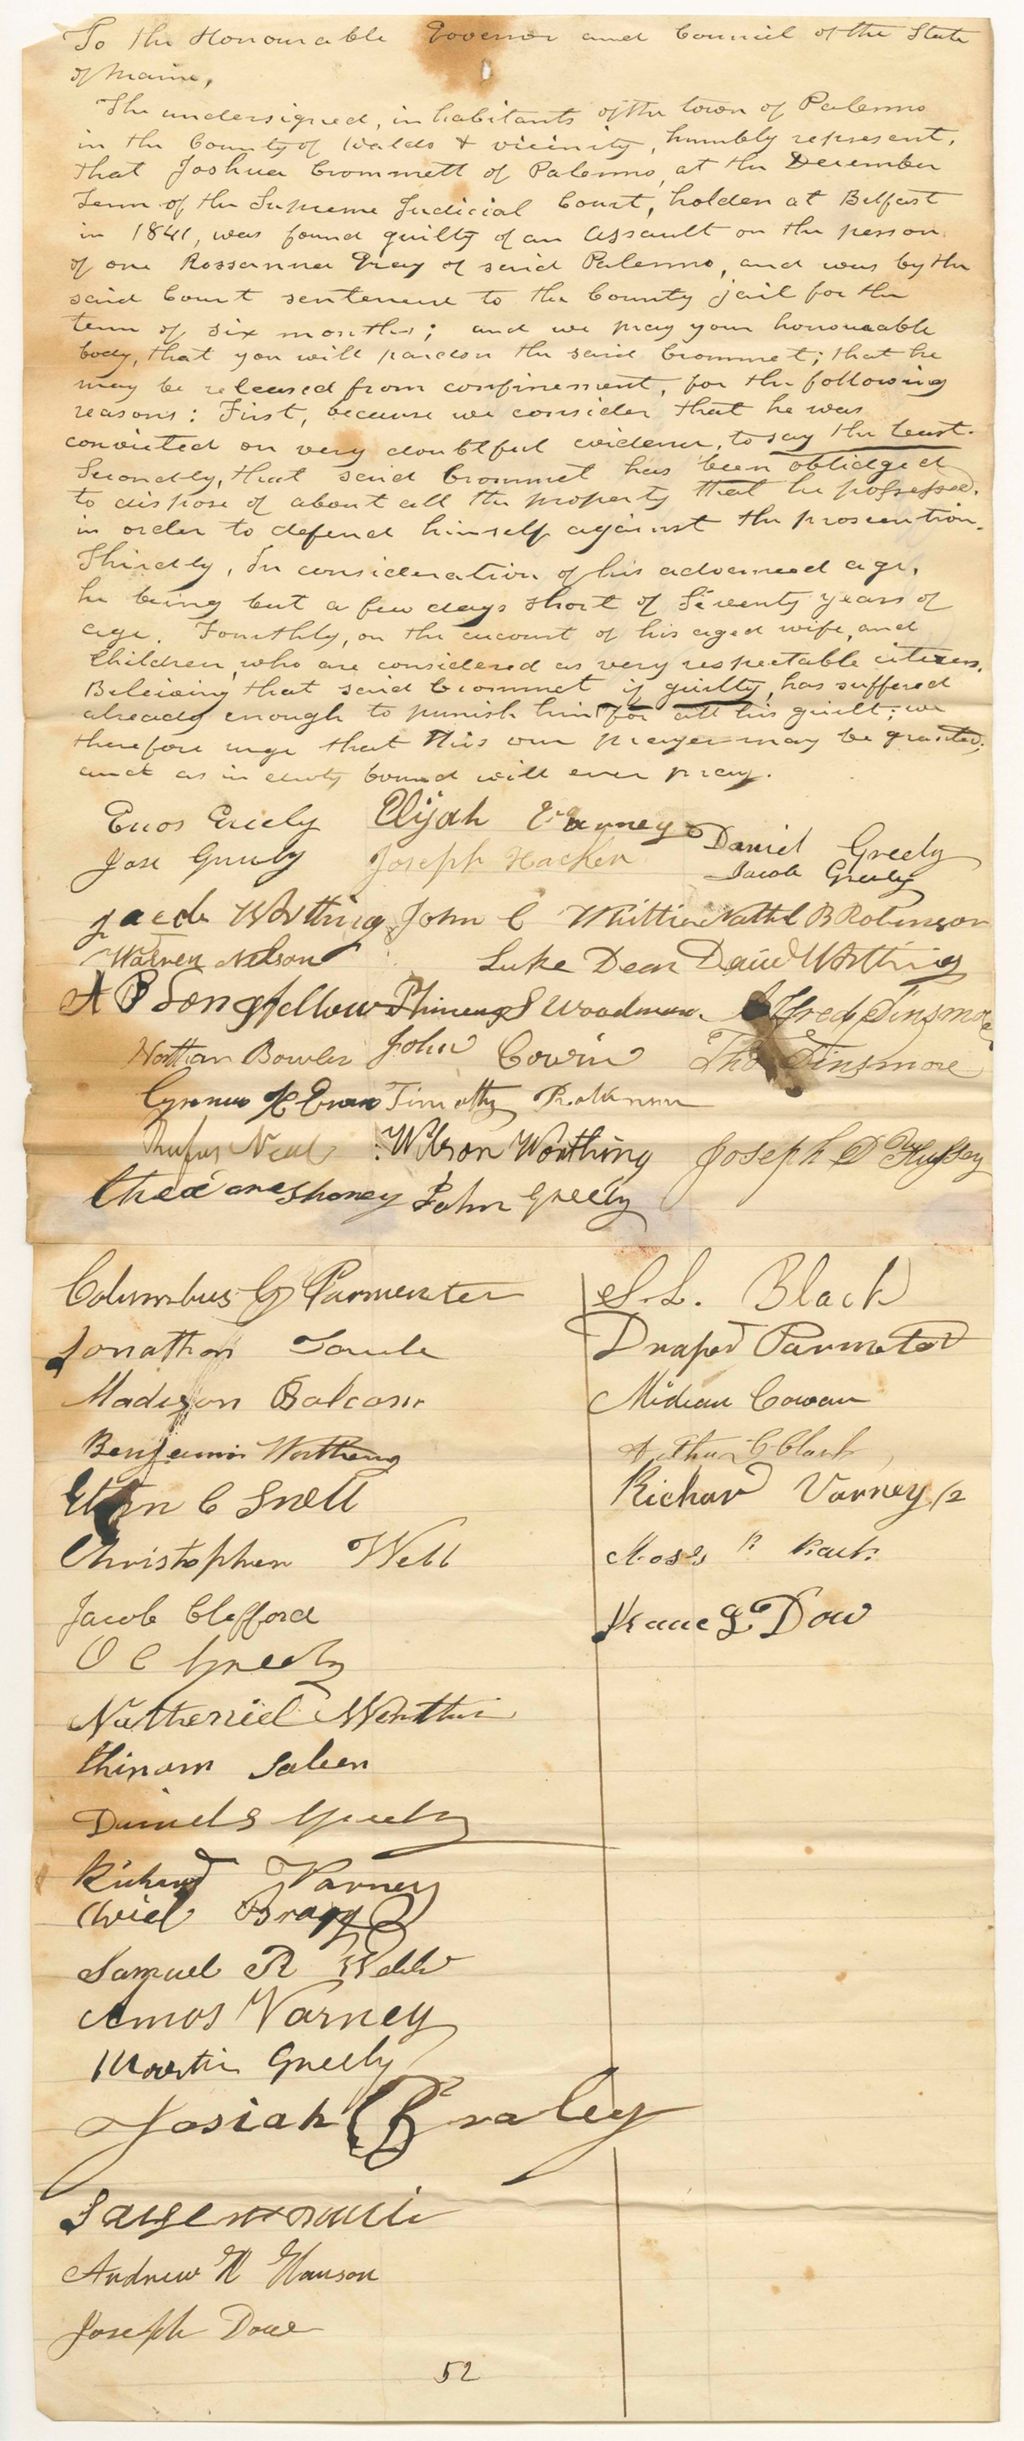 To the Honourable Governor and Council of the State
of Maine,
The undersigned, inhabitants of the town of Palermo
in the County of Waldo & vicinity, humbly represent,
that Joshua Crommett of Palermo, at the December
Term of the Supreme Judicial Court, holden at Belfast
in 1841, was found guilty of an assault on the person
of one Rossanna Gray of said Palermo, and was by the
said Court sentenced to the County jail for the
term of six months; and we pray your honourable
body, that you will pardon the said Crommet; that he
may be released from confinement, for the following
reasons: First, because we consider that he was
convicted on very doubtful evidence, to say the least.
Secondly, that said Crommet has been oblidged
to dispose of about all the property that he possessed.
in order to defend himself against the prosecution.
Thirdly, In consideration of his advanced age,
he being but a few days short of Seventy years of
age. Fourthly, on the account of his aged wife, and
Children, who are considered as very respectable citizens.
Beleiving that said Crommet if guilty, has suffered
already enough to punish him for all his guilt; we
therefore urge that this our prayer may be granted,
and as in duty bound will ever pray.
Enos Greely Elijah Varney Daniel Greely
Jose Greely Joseph Hacker Jacob Greely
Jacob Worthing John C Whittier Nathl B Robinson
Warren Nelson Luke Dean David Worthing
A P Longfellow Phineas S Woodman Alfred Dinsmore
Bowler John Cowin Tho Dinsmore
Timothy
Rufus Neal Wilson Worthing Joseph D
John Greely
Columbus G Parmenter S. L. Black
Jonathan Towle Draper Parmeter
Madison Balcom Midian Cowan
Benjamin Worthing Arthur G Clark
C Snell Richard Varney /2
Christopher Webb Moses
Jacob Clifford Dow
O C Greely
Natheniel Worthin
Daniel S Greely
Richard Varney
Bragg
Samuel R Webb
Amos Varney
Martin Greely
Josiah Braley
Andrew H Hanson
Joseph Dow
52